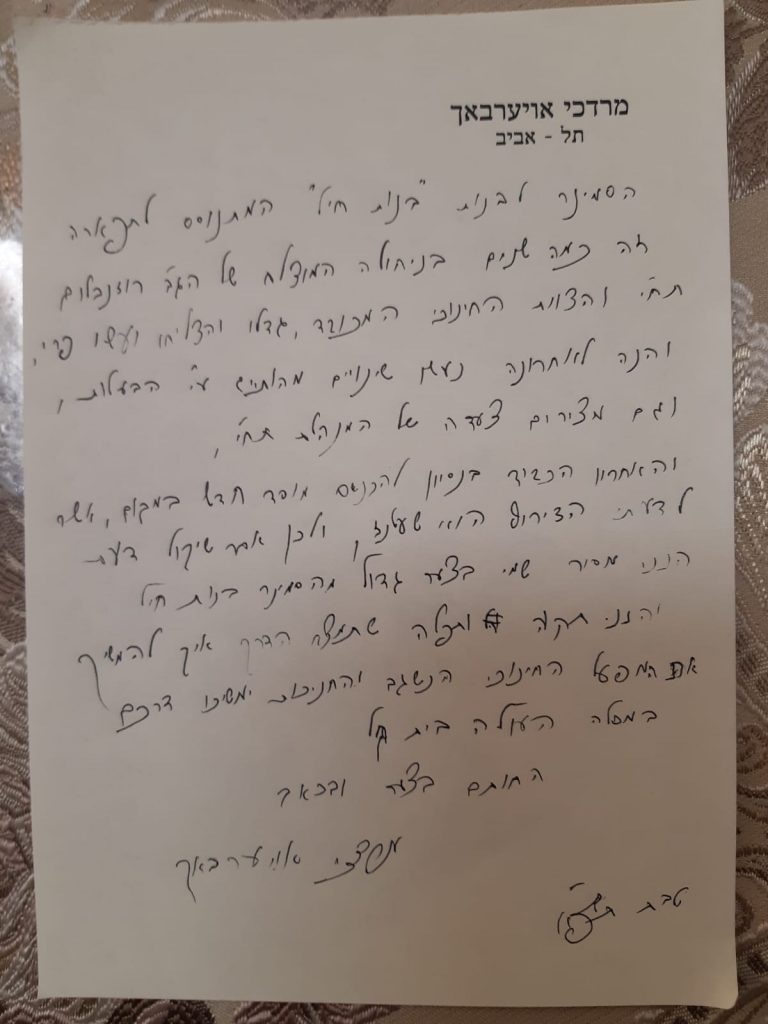 מרדכי אויערבאך
תל - אביב
הסמינר לבנות "בנות חיל" המתנוסס לתפארה
זה כמה שנים בניהולה המוצלח של הגב' רוזנבלום
תחי' והצוות החינוכי המכובד, גדלו והצליחו ועשו פרי,
והנה לאחרונה נעשו שינויים מהותיים ע"י הבעלות,
וגם מצירים צעדה של המנהלת תחי',
והאחרון הכביד בנסיון להכנס מוסד חדש במקום, אשר
לדעתי הצירוף הוא שעטנז, ולכן אחר שיקול דעת
הנני מסיר שמי בצער גדול מהסמינר בנות חיל
והנני תקוה ותפלה שתמצא הדרך איך להמשיך
את המפעל החינוכי הנשגב והחניכות ימשיכו דרכם
במסלה העולה בית קל
החותם בצער ובכאב
מרדכי אויערבאך
טבת